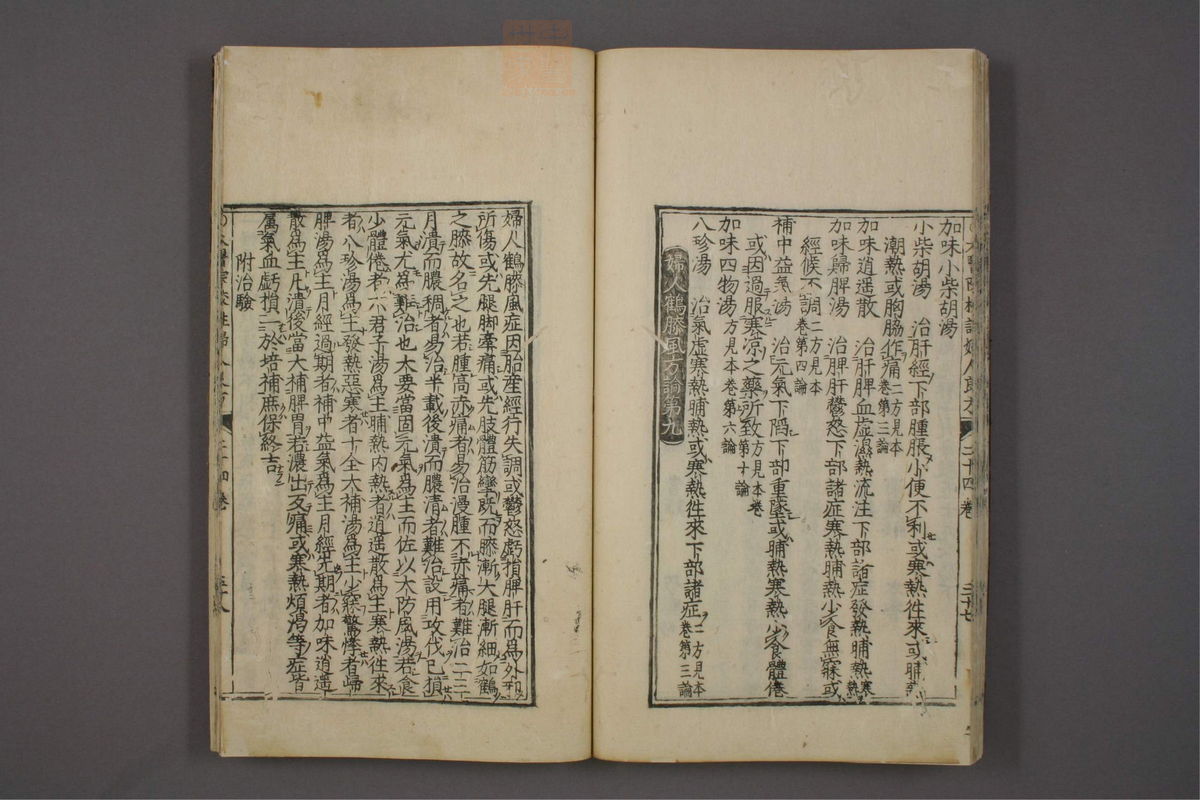 加味小柴胡湯
小柴胡湯　治肝經下部腫脹小便不利或寒熱往來或晡
潮熱或胸脇作痛二方見本卷第三論
加味逍遥散　治肝脾血虚濕熱流注下部諸症發熱晡熱寒熱
加味歸脾湯　治脾肝鬱怒下部諸症寒熱晡熱少食無寐或
經候不調二方見本卷第四論
補中益氣湯　治元氣下陷下部重墜或晡熱寒熱少食體倦
或因過服寒凉之藥所致方見本卷第十論
加味四物湯方見本卷第六論
八珍湯　治氣虚寒熱晡熱或寒熱往來下部諸症二方見本卷第三論
婦人鶴膝風方論第九
二十四卷　三十七
婦人鶴膝風症因胎産經行失調或鬱怒虧損脾肝而爲外邪
所傷或先腿脚牽痛或先肢體筋攣既而膝漸大腿漸細如鶴
之膝故名之也若腫高赤痛者易治漫腫不赤痛者難治二三
月潰而膿稠者易治半載後潰而膿清者難治設用攻伐已損
元氣尤爲難治也大要當固元氣爲主而佐以大防風湯若食
少體倦者六君子湯爲主晡熱内熱者逍遥散爲主寒熱往來
者八珍湯爲主發熱惡寒者十全大補湯爲主少寐驚悸者歸
脾湯爲主月經過期者補中益氣爲主月經先期者加味逍遥
散爲主凡潰後當大補脾胃若濃出反痛或寒熱煩渇等症皆
屬氣血虧損一於培補庶保終吉
附治驗
二十四卷　三十八